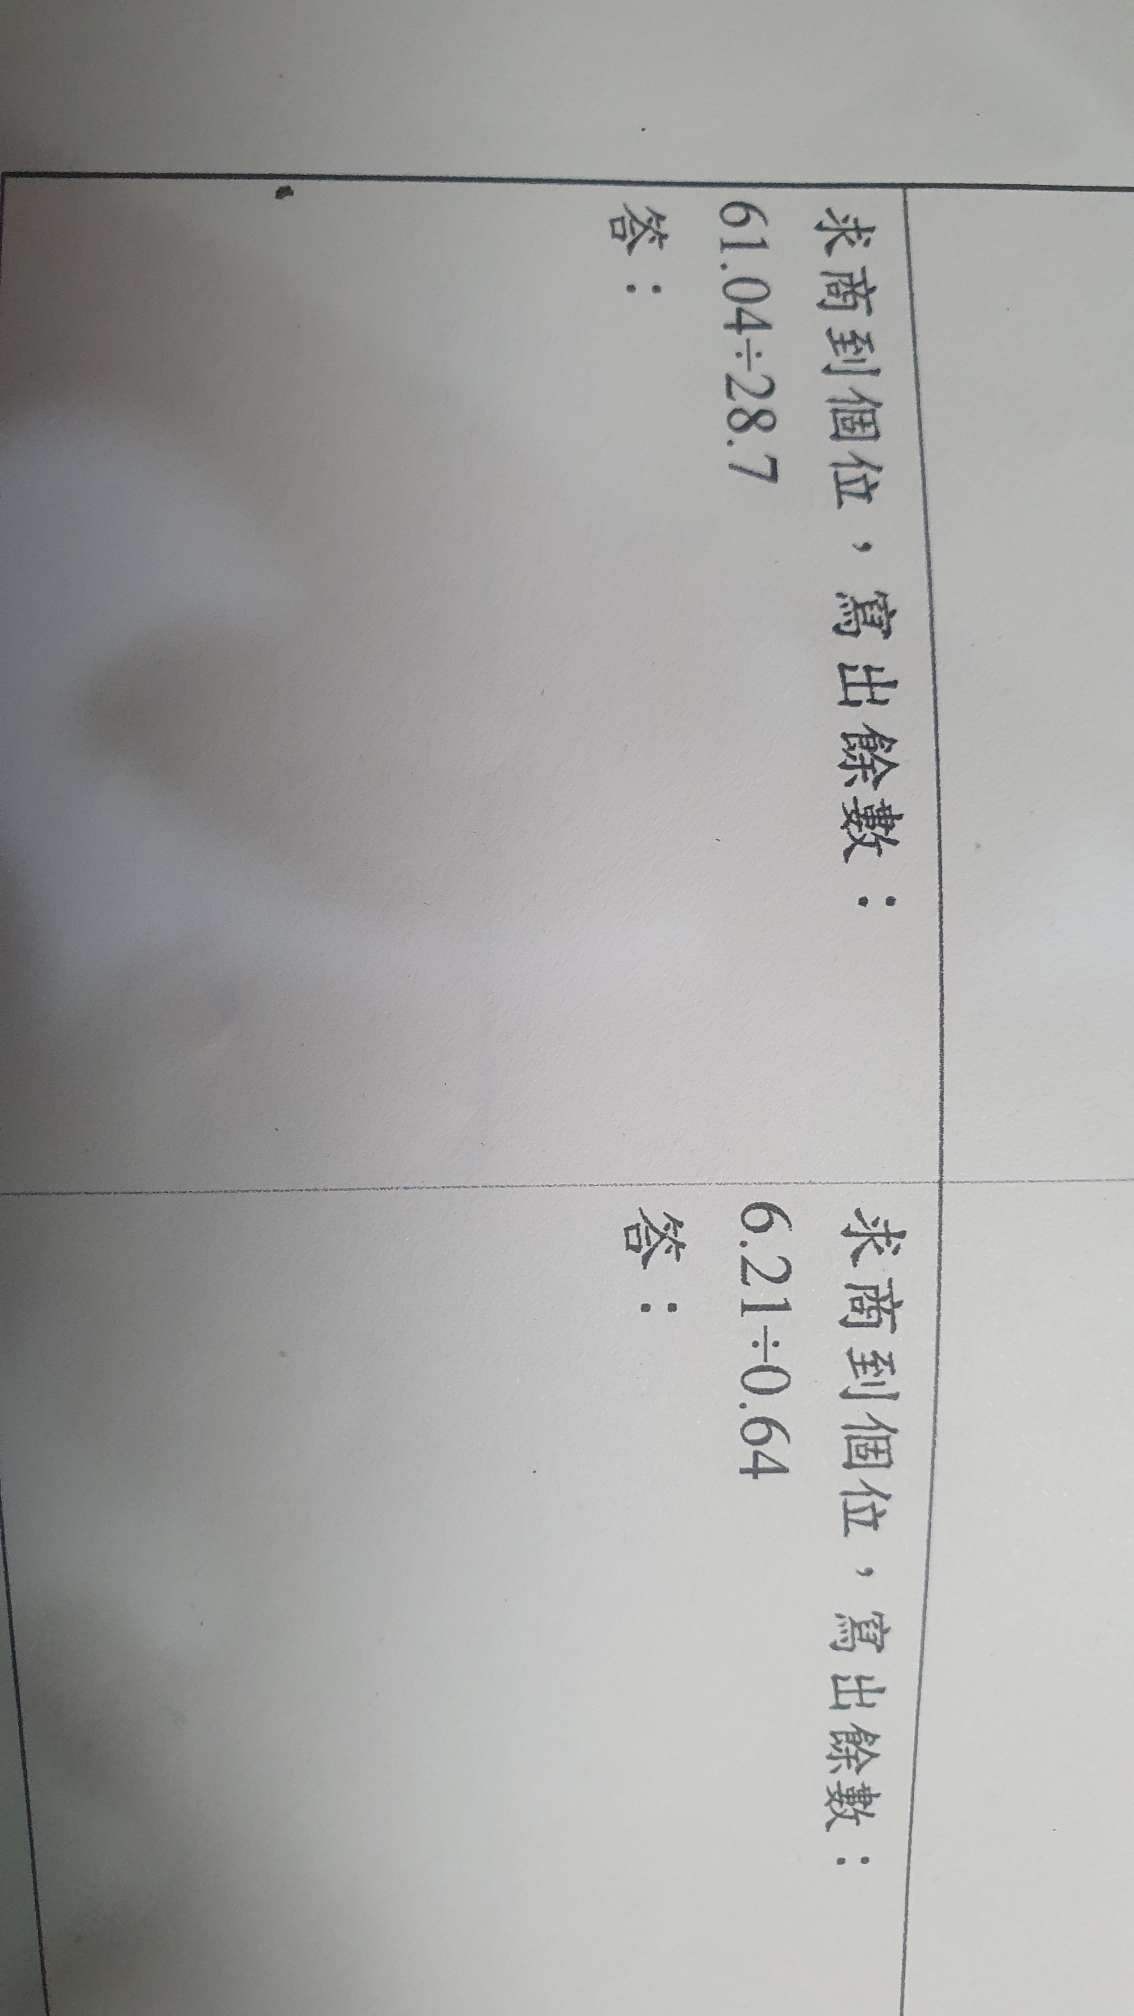 求商到個位，寫出餘數：
61.04÷28.7
答：
求商到個位，寫出餘數：
6.21÷0.64
答：